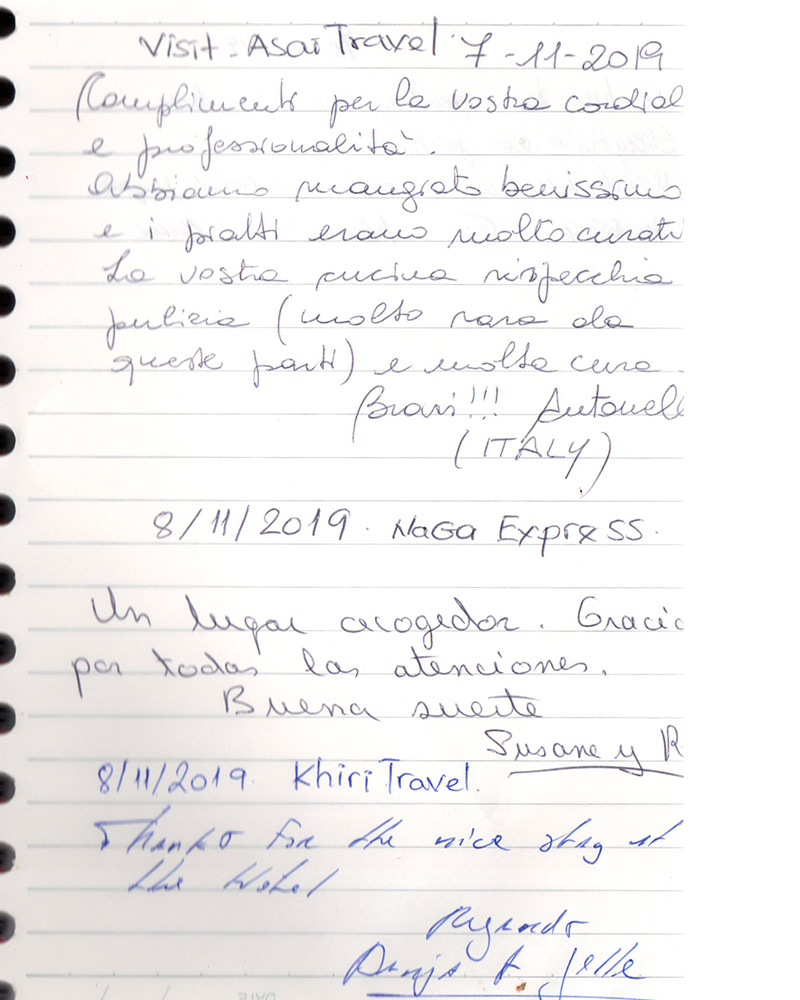 Visit - Asai Travel 7-11-2019
Complimenti per la vostra cordial
e professionalità.
Abbiamo mangiato benissimo
e i piatti erano molto curati
La vostra cucina rispecchia
pulizia (molto rara da
queste parti) e molta cura.
Bravi!!! Antonell
(ITALY)
8/11/2019. Naga Express.
Un lugar acogedor. Gracia
por todas las atenciones.
Buena suerte
Susane y R
8/11/2019. Khiri Travel.
Thanks for the nice stay at
the Hotel
Regards
Jelle